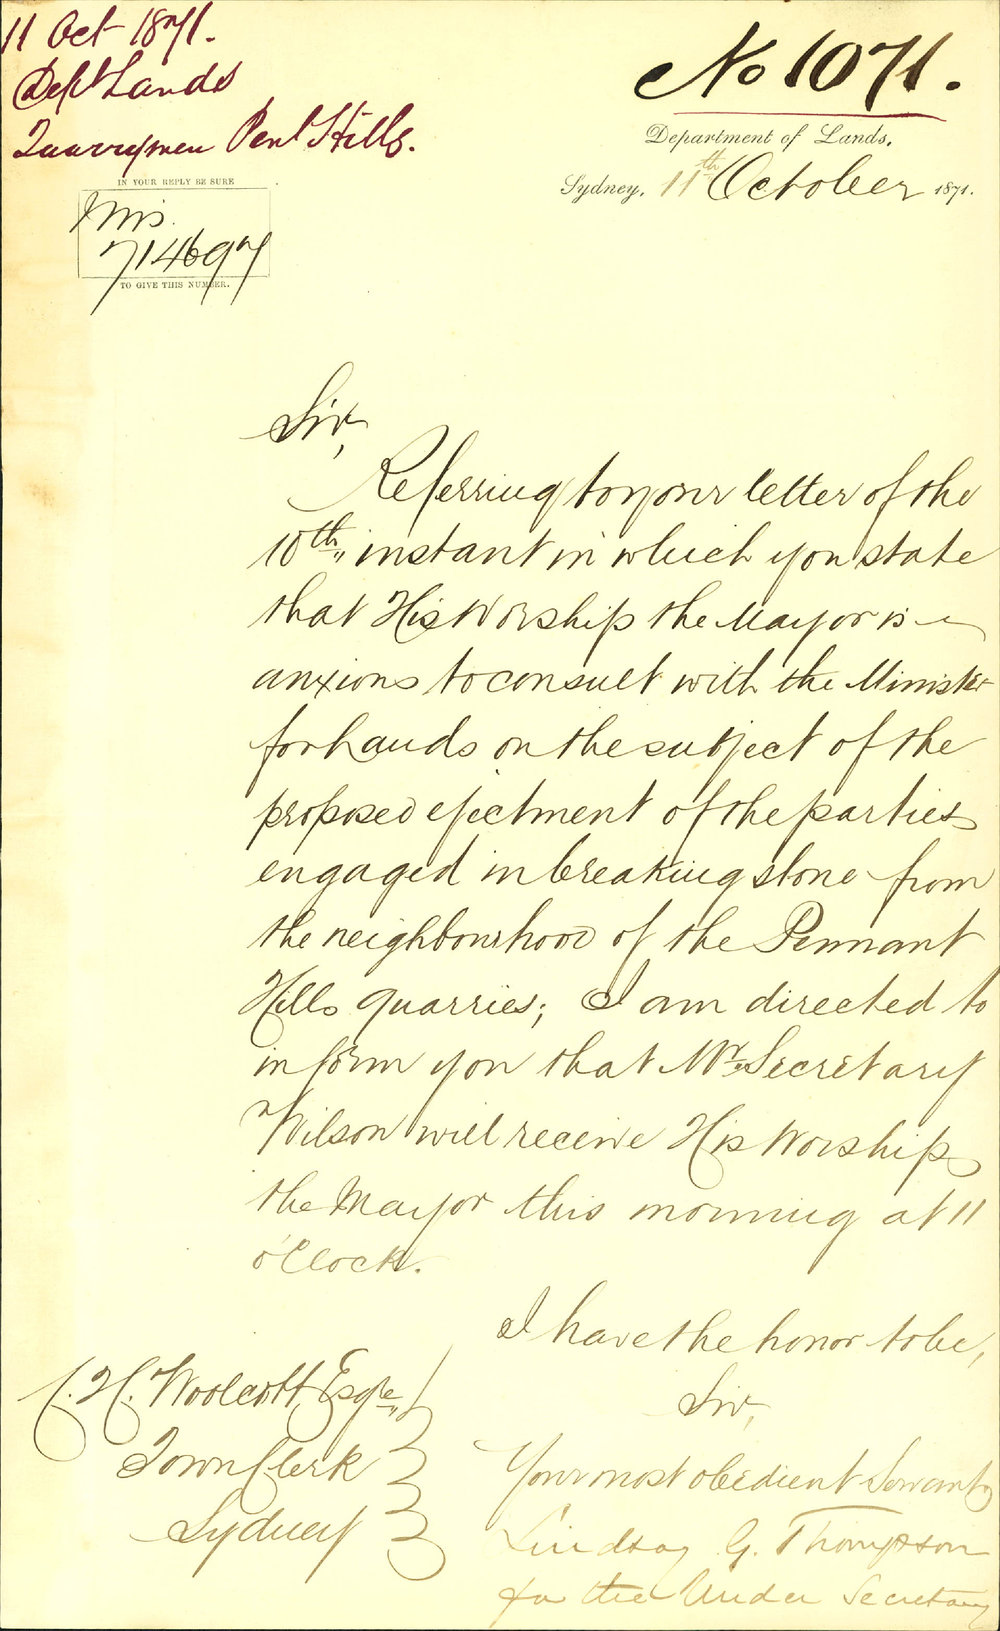 11 Oct 1871.
Dept Lands
Quarrymen Pent Hills.
No 1071.
Department of Lands,
Sydney, 11th October 1871.
IN YOUR REPLY BE SURE
Mis.
714697
TO GIVE THIS NUMBER.
Sir,
Referring to your letter of the
10th instant in which you state
that His Worship the Mayor is
anxious to consult with the Minister
for Lands on the subject of the
proposed ejectment of the parties
engaged in breaking stone from
the neighbourhood of the Pennant
Hills quarries; I am directed to
inform you that Mr. Secretary
Wilson will receive His Worship
the Mayor this morning at 11
o'Clock.
I have the honor to be,
Sir,
Your most obedient Servant
Lindsay G. Thompson
for the Under Secretary
C. H. Woolcott, Esqre.,
Town Clerk
Sydney